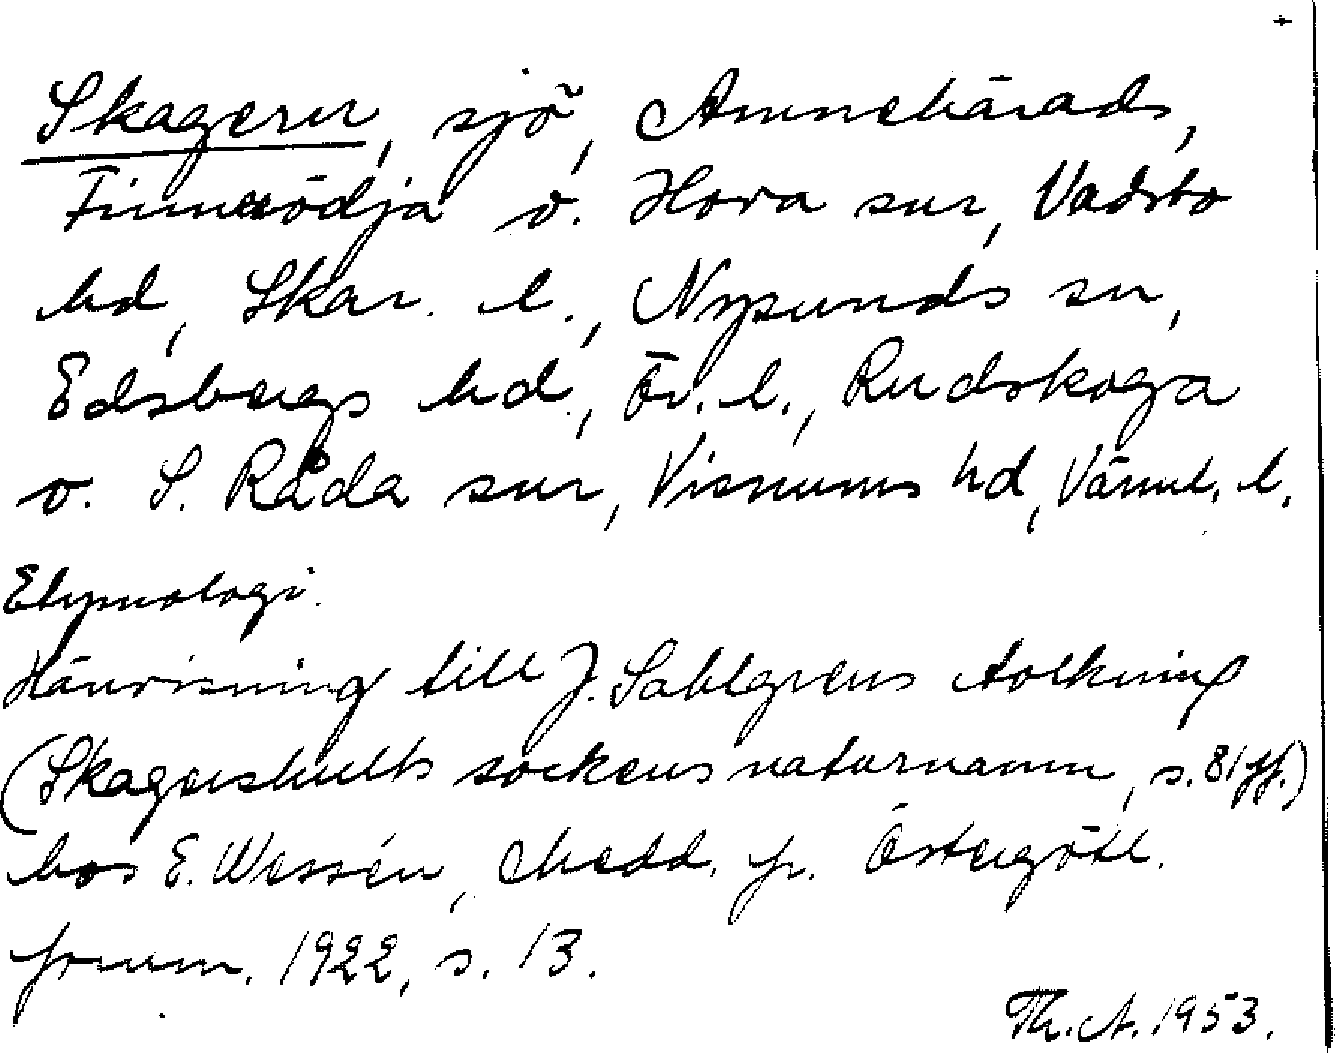 +
Skagern, sjö, Amnehärads,
Finnerödja o. Hova snr, Vadsbo
hd, Skar. l., Nysunds sn,
Edsbergs hd., Ör. l., Rudskoga
o. S. Råda snr, Visnums hd, Värml. l.
Etymologi.
Hänvisning till J. Sahlgrens tolkning
(Skagershults sockens naturnamn, s. 81 ff.)
hos E. Wessén, Medd. fr. Östergötl.
fornm. 1922, s. 13.
Th. A. 1953.